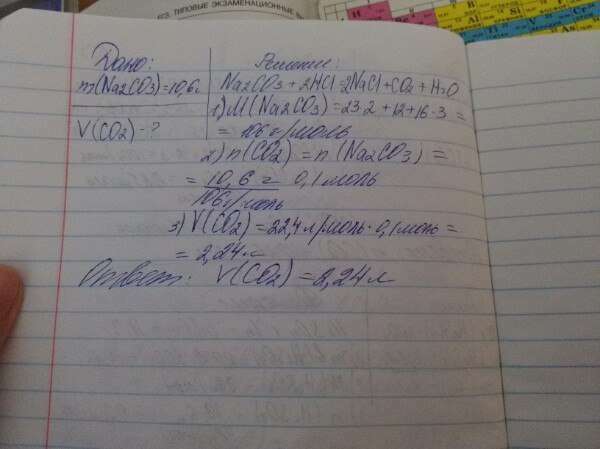 ЕГЭ. ТИПОВЫЕ ЭКЗАМЕНАЦИОННЫЕ
Дано:
m(Na2CO3)=10,6г
V(CO2)-?
Решение:
Na2CO3+2HCl=2NaCl+CO2+H2O
1) M(Na2CO3)=23·2+12+16·3=
=106г/моль
2) n(CO2)=n(Na2CO3)=
=10,6г 0,1моль
106г/моль
3) V(CO2)=22,4л/моль·0,1моль=
=2,24л
Ответ: V(CO2)=2,24л